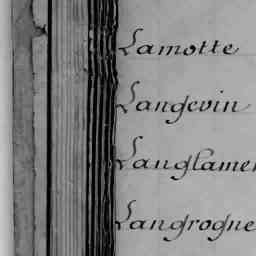 Lamotte
Langevin
Langlamer
Langrogne